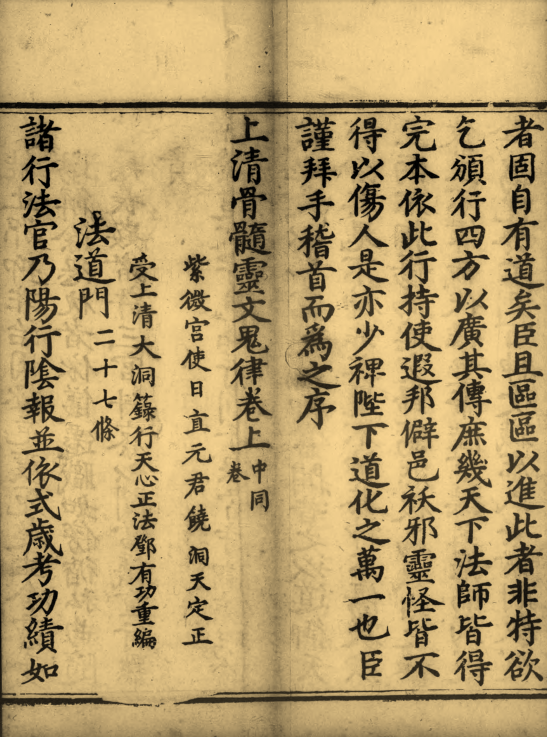 者固自有道矣臣且區區以進此者非特欲
乞頒行四方以廣其傳庶幾天下法師皆得
完本依此行持使遐邦僻邑祅邪靈怪皆不
得以傷人是亦少裨陛下道化之萬一也臣
謹拜手稽首而爲之序
上清骨髓靈文鬼律卷上中同卷
紫微宫使日直元君饒洞天定正
受上清大洞籙行天心正法鄧有功重編
法道門二十七條
諸行法官乃陽行陰報並依式歲考功績如